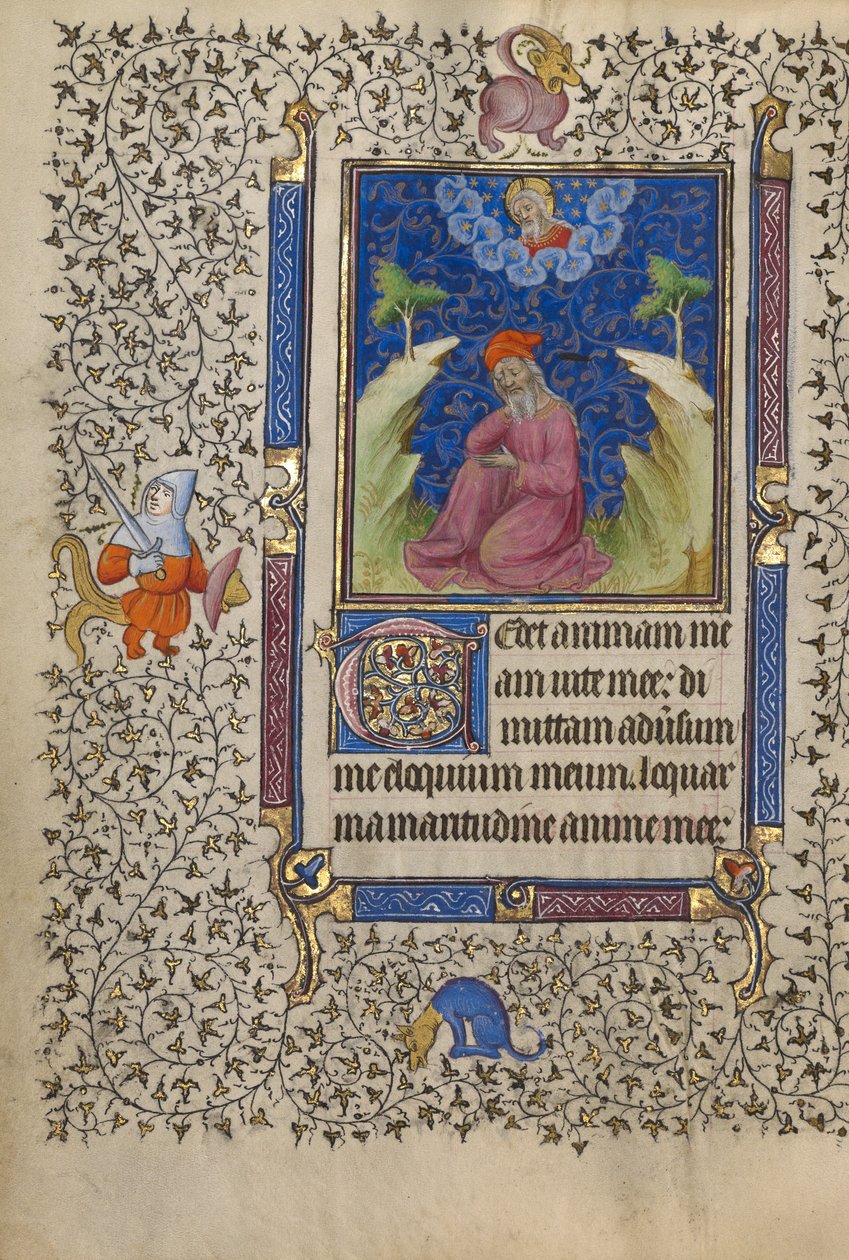 Tedet animam me
am uite mee: di
mittam adūsum
me eloquium meum. loquar
in amaritudine anime mee: